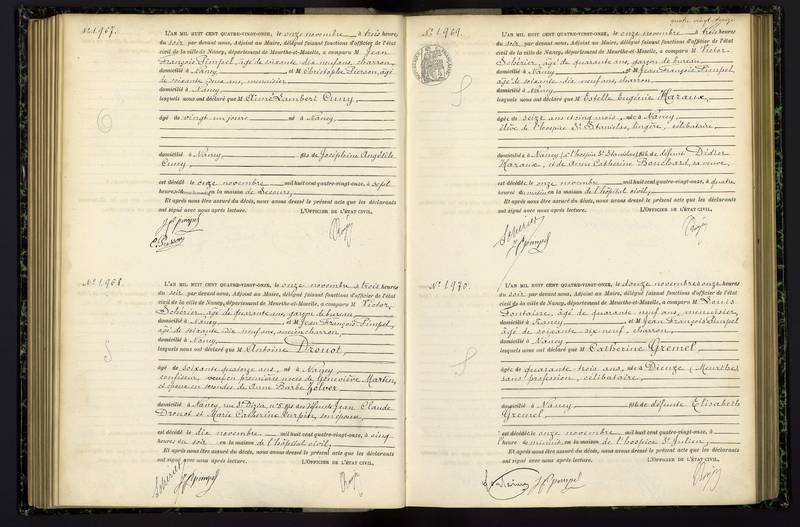 N° 1967.
L'AN MIL HUIT CENT QUATRE-VINGT-ONZE, le onze novembre à trois heures
du soir par devant nous, Adjoint au Maire, délégué faisant fonctions d'officier de l'état
civil de la ville de Nancy, département de Meurthe-et-Moselle, a comparu M Jean
François Pimpel, âgé de soixante dix neuf ans, charron,
domicilié à Nancy et M Christophe Pierson, âgé
de soixante ans, menuisier
domicilié à Nancy
lesquels nous ont déclaré que M Aimé Lambert Cuny,
âgé de vingt un jours né à Nancy,
domicilié à Nancy fils de Joséphine Angélile
Cuny
est décédé le onze novembre mil huit cent quatre-vingt-onze, à sept
heures en la maison de Secours,
Et après nous être assuré du décès, nous avons dressé le présent acte que les déclarants
ont signé avec nous après lecture. L'OFFICIER DE L'ÉTAT CIVIL,
N° 1968.
L'AN MIL HUIT CENT QUATRE-VINGT-ONZE, le onze novembre à trois heures
du soir par devant nous, Adjoint au Maire, délégué faisant fonctions d'officier de l'état
civil de la ville de Nancy, département de Meurthe-et-Moselle, a comparu M Victor
Schérier, âgé de quarante ans, garçon de bureau,
domicilié à Nancy et M Jean François Pimpel,
âgé de soixante dix neuf ans, charron,
domicilié à Nancy,
lesquels nous ont déclaré que M Antoine Drouot,
âgé de soixante quatorze ans, né à Nancy,
confiseur, veuf en premières noces de Geneviève Martin,
et époux en secondes de Anne Barbe Zolver
domicilié à Nancy, rue St Dizier, fils des défunts Jean Claude
Drouot et Marie Catherine son épouse
est décédé le dix novembre mil huit cent quatre-vingt-onze, à cinq
heures du soir en la maison de l'hôpital civil,
Et après nous être assuré du décès, nous avons dressé le présent acte que les déclarants
ont signé avec nous après lecture. L'OFFICIER DE L'ÉTAT CIVIL,
quatre vingt
N° 1969.
L'AN MIL HUIT CENT QUATRE-VINGT-ONZE, le onze novembre à trois heures
du soir par devant nous, Adjoint au Maire, délégué faisant fonctions d'officier de l'état
civil de la ville de Nancy, département de Meurthe-et-Moselle, a comparu M Victor
Schérier, âgé de quarante ans, garçon de bureau,
domicilié à Nancy et M Jean François Pimpel,
âgé de soixante dix neuf ans, charron,
domicilié à Nancy,
lesquels nous ont déclaré que M Estelle Eugénie Haraux,
âgée de seize ans et cinq mois, née à Nancy,
élève de l'hospice St Stanislas, lingère, célibataire
domiciliée à Nancy (à l'hospice St Stanislas) fille de défunt Didier
Haraux, et de Anne Catherine Bouchard, sa veuve,
est décédée le onze novembre mil huit cent quatre-vingt-onze, à quatre
heures du matin en la maison de l'hôpital civil,
Et après nous être assuré du décès, nous avons dressé le présent acte que les déclarants
ont signé avec nous après lecture. L'OFFICIER DE L'ÉTAT CIVIL,
N° 1970.
L'AN MIL HUIT CENT QUATRE-VINGT-ONZE, le douze novembre à onze heures
du soir par devant nous, Adjoint au Maire, délégué faisant fonctions d'officier de l'état
civil de la ville de Nancy, département de Meurthe-et-Moselle, a comparu M Louis
Fontaine, âgé de quarante neuf ans, menuisier,
domicilié à Nancy et M Jean François Pimpel
âgé de soixante dix neuf, charron,
domicilié à Nancy
lesquels nous ont déclaré que M Catherine Gremel,
âgée de quarante trois ans, née à Dieuze (Meurthe)
sans profession, célibataire,
domiciliée à Nancy fille de défunte Elisabeth
Gremel
est décédée le onze novembre mil huit cent quatre-vingt-onze, à
l'heure de minuit, en la maison de l'hospice St Julien,
Et après nous être assuré du décès, nous avons dressé le présent acte que les déclarants
ont signé avec nous après lecture. L'OFFICIER DE L'ÉTAT CIVIL,